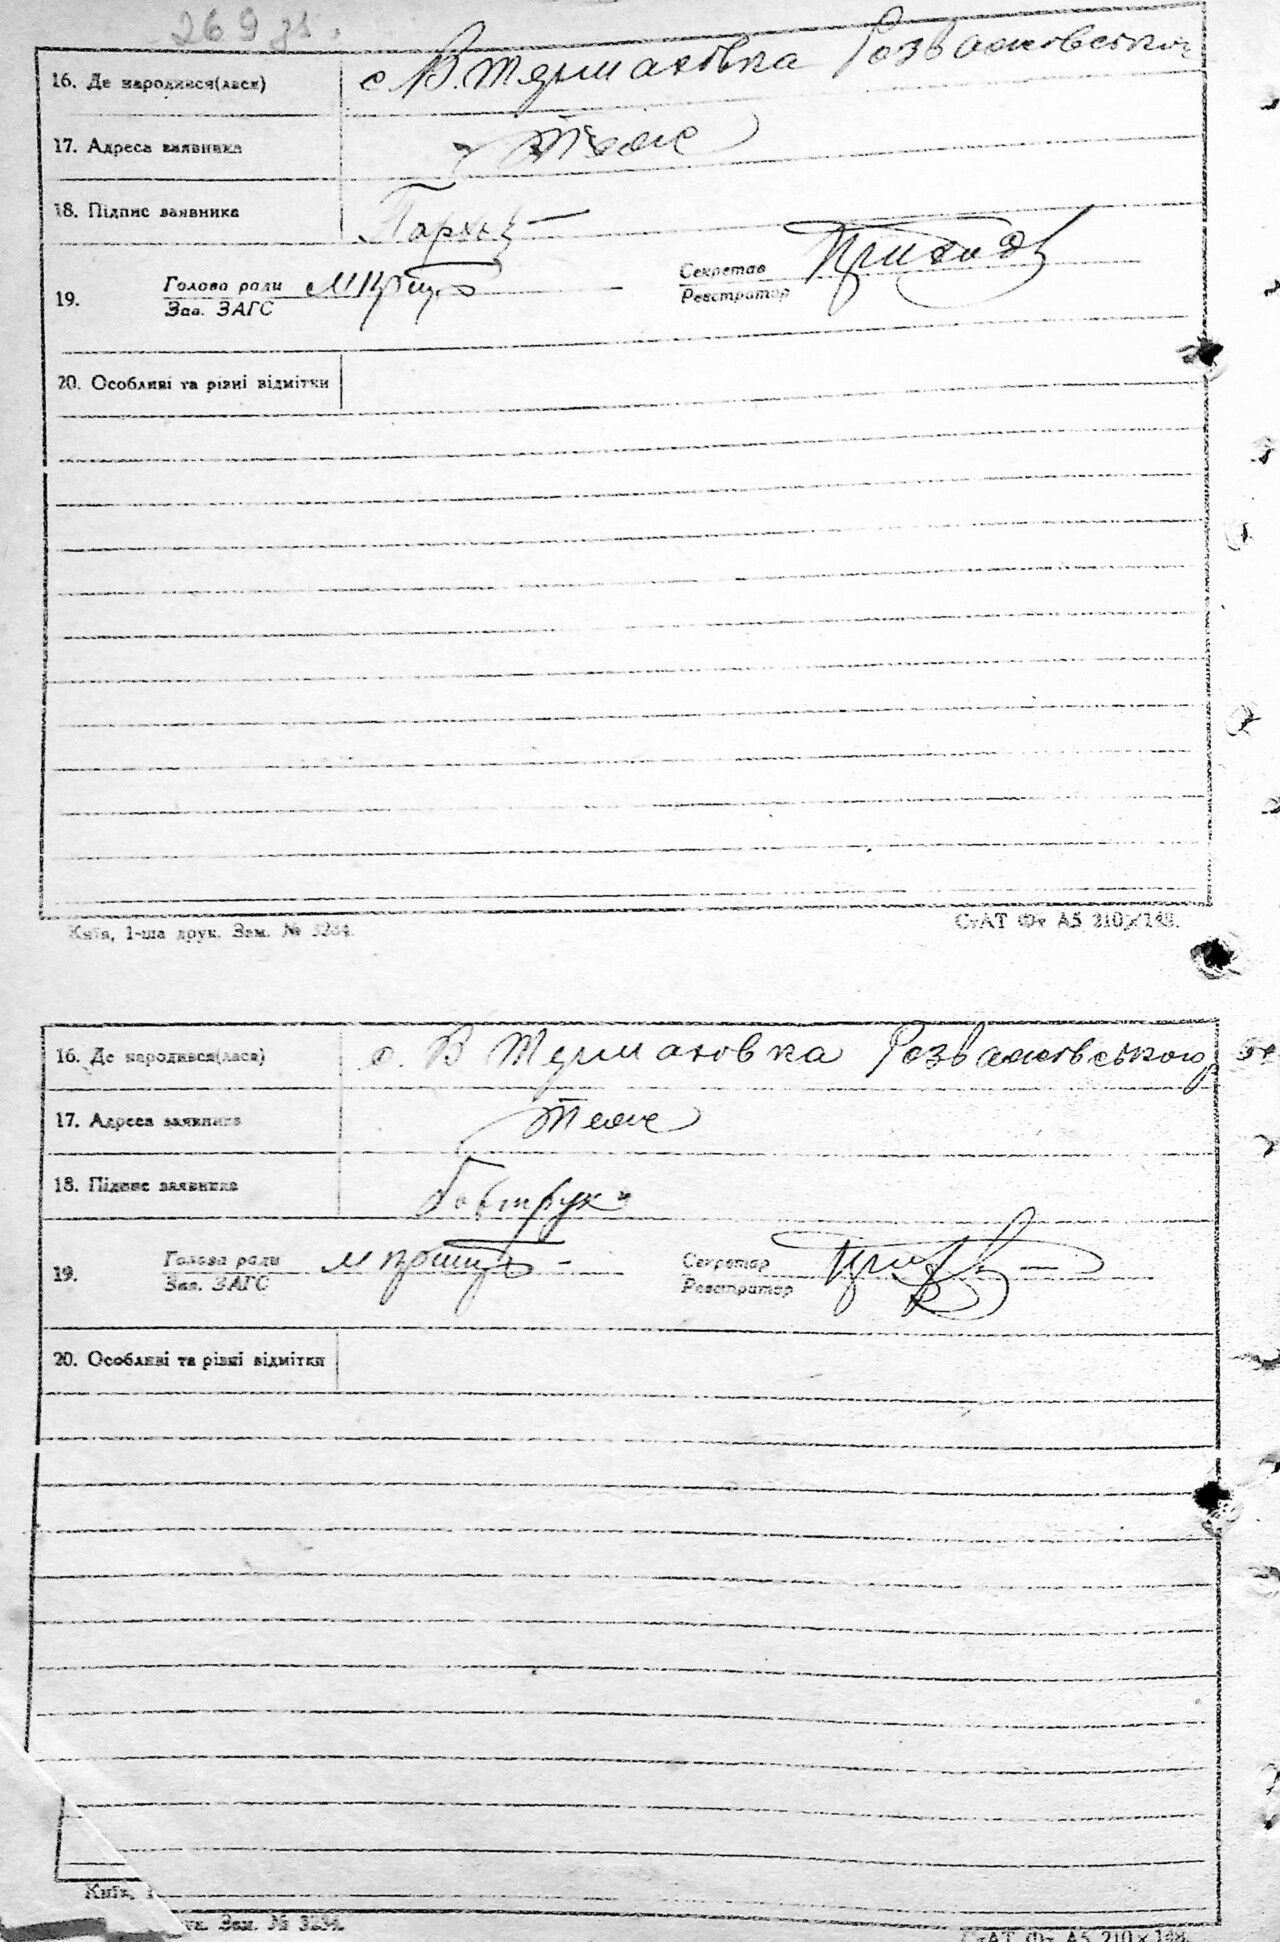 269 зв.
16. Де народився(лася) с В. Термаховка Розважівського
17. Адреса заявника Теж
18. Підпис заявника
19. Голова ради Секретар
Зав. ЗАГС Реєстратор
20. Особливі та різні відмітки
Київ, 1-ша друк. Зам. № 3234. СтАТ Фт А5 210×148.
16. Де народився(лася) с. В Термаховка Розважівського
17. Адреса заявника Теж
18. Підпис заявника
19. Голова ради Секретар
Зав. ЗАГС Реєстратор
20. Особливі та різні відмітки
Київ, 1
Зам. № 3234. СтАТ Фт А5 210×148.